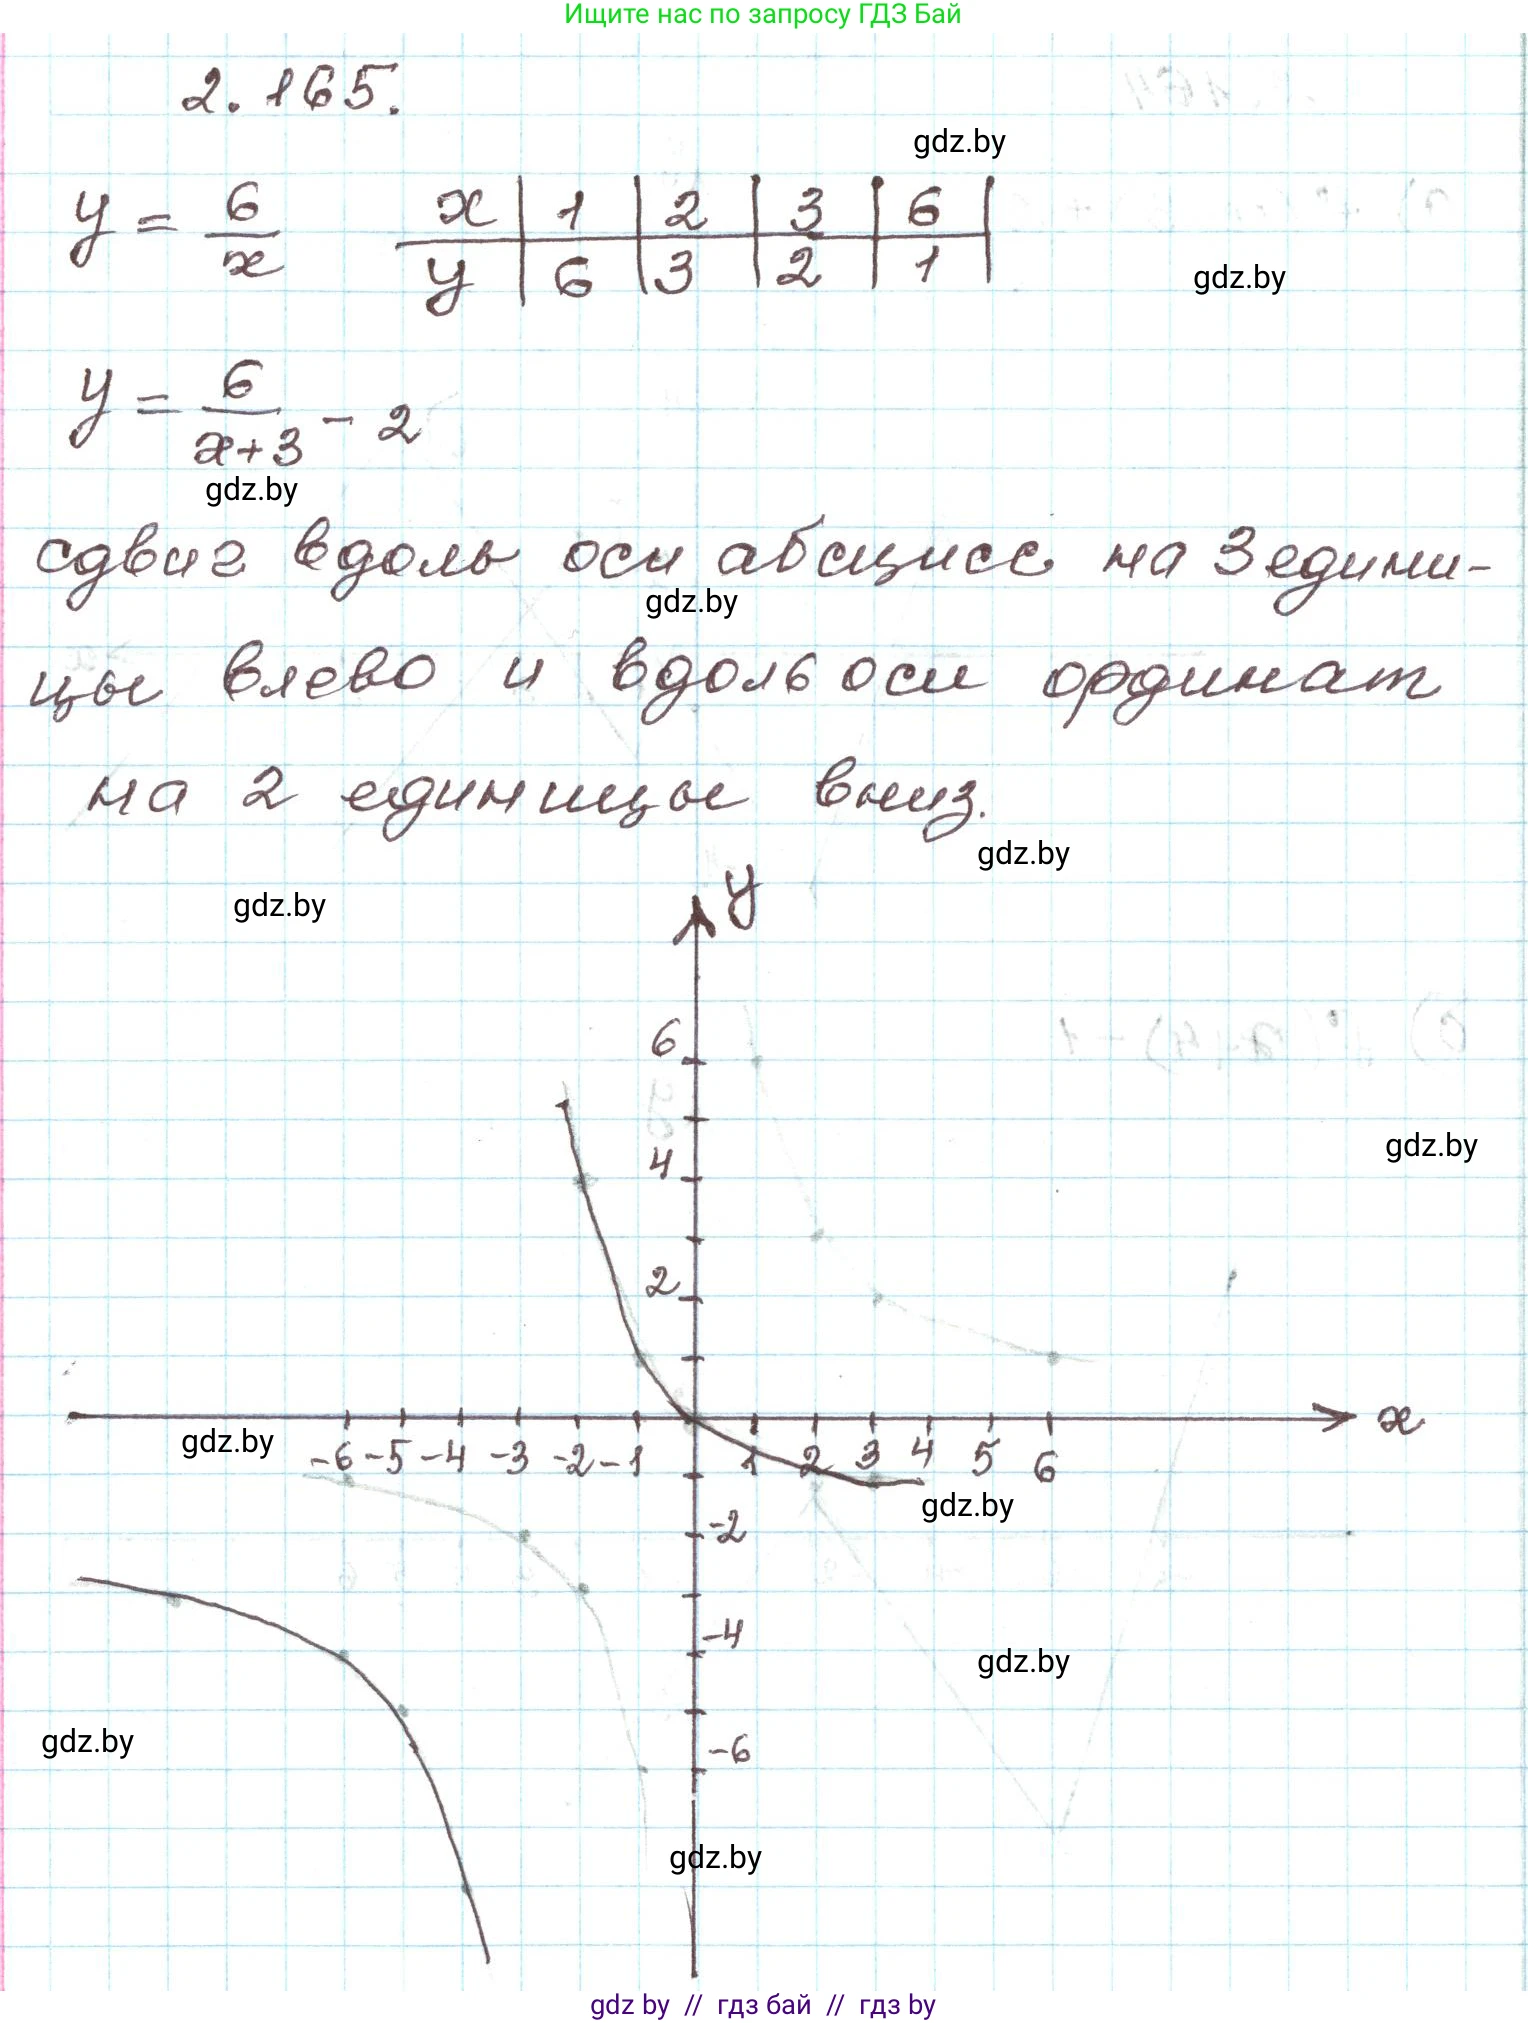 Ищите нас по запросу ГДЗ Бай
2.165.
gdz.by
y = 6/x
x | 1 | 2 | 3 | 6
y | 6 | 3 | 2 | 1
gdz.by
y = 6/(x+3) - 2
gdz.by
сдвиг вдоль оси абсцисс на 3 едини-
gdz.by
цы влево и вдоль оси ординат
на 2 единицы вниз.
gdz.by
gdz.by
y
6
gdz.by
4
2
x
gdz.by
-6 -5 -4 -3 -2 -1 1 2 3 4 5 6
gdz.by
-2
-4
gdz.by
gdz.by
-6
gdz.by
gdz by // гдз бай // гдз by